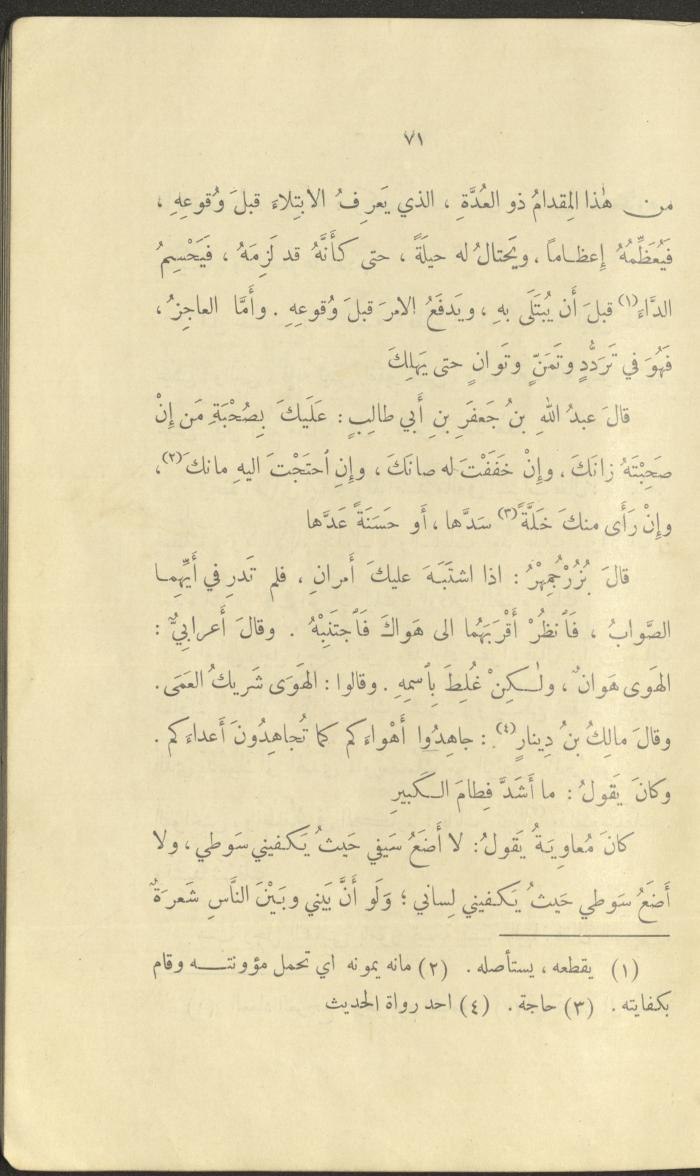 ٧١
من هٰذا المِقدامُ ذو العُدَّةِ ، الذي يَعرِفُ الابتِلاءَ قبلَ وُقوعِهِ ،
فَيُعَظِّمُهُ إِعظاماً ، ويَحتالُ له حيلَةً ، حتى كأَنَّهُ قد لَزِمَهُ ، فَيَحْسِمُ
الدَّاءَ(١) قبلَ أَن يُبتَلَى بهِ ، ويَدفَعُ الامرَ قبلَ وُقوعِهِ . وأَمَّا العاجِزُ ،
فَهُوَ في تَرَدُّدٍ وتَمَنٍّ وتَوانٍ حتى يَهلِكَ
قالَ عبدُ اللهِ بنُ جَعفَرِ بنِ أَبي طالِبٍ : عَلَيكَ بِصُحْبَةِ مَن إِنْ
صَحِبْتَهُ زانَكَ ، وإِنْ خَفَفْتَ له صانَكَ ، وإِنِ ٱحتَجْتَ اليهِ مانكَ(٢) ،
وإِنْ رَأَى منكَ خَلَّةً(٣) سَدَّها ، أَو حَسَنَةً عَدَّها
قالَ بُزُرْجُمِهْرُ : اذا اشتَبَهَ عليكَ أَمرانِ ، فلم تَدرِ في أَيِّهِما
الصَّوابُ ، فَٱنظُرْ أَقْرَبَهُما الى هَواكَ فَٱجتَنِبْهُ . وقالَ أَعرابيٌّ :
الهَوى هَوانٌ ، ولٰكِنْ غُلِطَ بِٱسمِهِ . وقالوا : الهَوَى شَريكُ العَمَى .
وقالَ مالِكُ بنُ دِينارٍ(٤) : جاهِدُوا أَهْواءَكم كما تُجاهِدُونَ أَعداءَكم .
وكانَ يَقولُ : ما أَشَدَّ فِطامَ الكَبيرِ
كانَ مُعاوِيَةُ يَقولُ : لا أَضَعُ سَيفي حَيثُ يَكفيني سَوطي ، ولا
أَضَعُ سَوطي حَيثُ يَكفيني لِساني ؛ وَلَو أَنَّ بَيني وبَيْنَ النَّاسِ شَعرَةٌ
(١) يقطعه ، يستأصله . (٢) مانه يمونه اي تحمل مؤونتــه وقام
بكفايته . (٣) حاجة . (٤) احد رواة الحديث